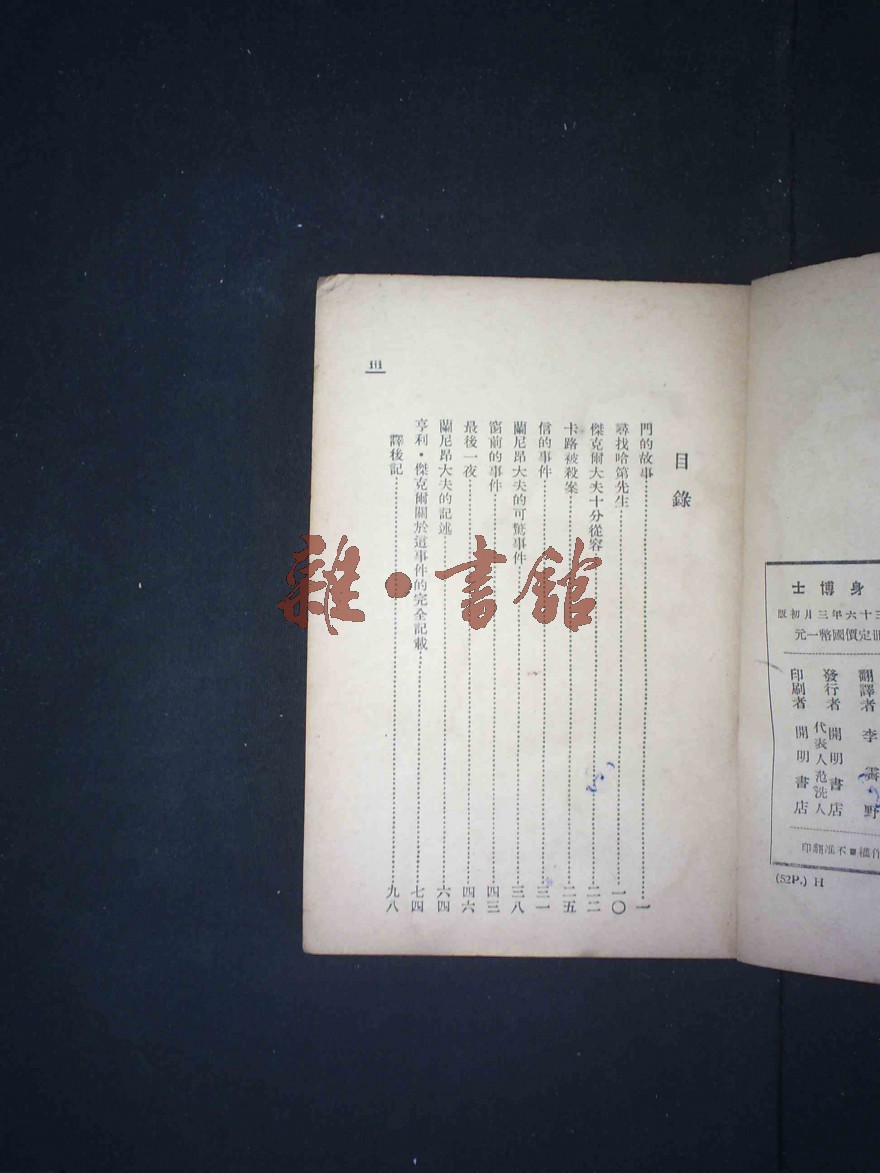 目錄
門的故事……一
尋找哈第先生……一〇
傑克爾大夫十分從容……二二
卡路被殺案……二五
信的事件……三一
蘭尼昂大夫的可驚事件……三八
窗前的事件……四三
最後一夜……四六
蘭尼昂大夫的記述……六四
亨利·傑克爾關於這事件的完全記載……七四
譯後記……九八
iii
雜·書館
身博士
三十六年三月初版
定價國幣一元
翻譯者 李霽野
發行者 開明書店
代表人范洗人
印刷者 開明書店
不准翻印
(52P.) H